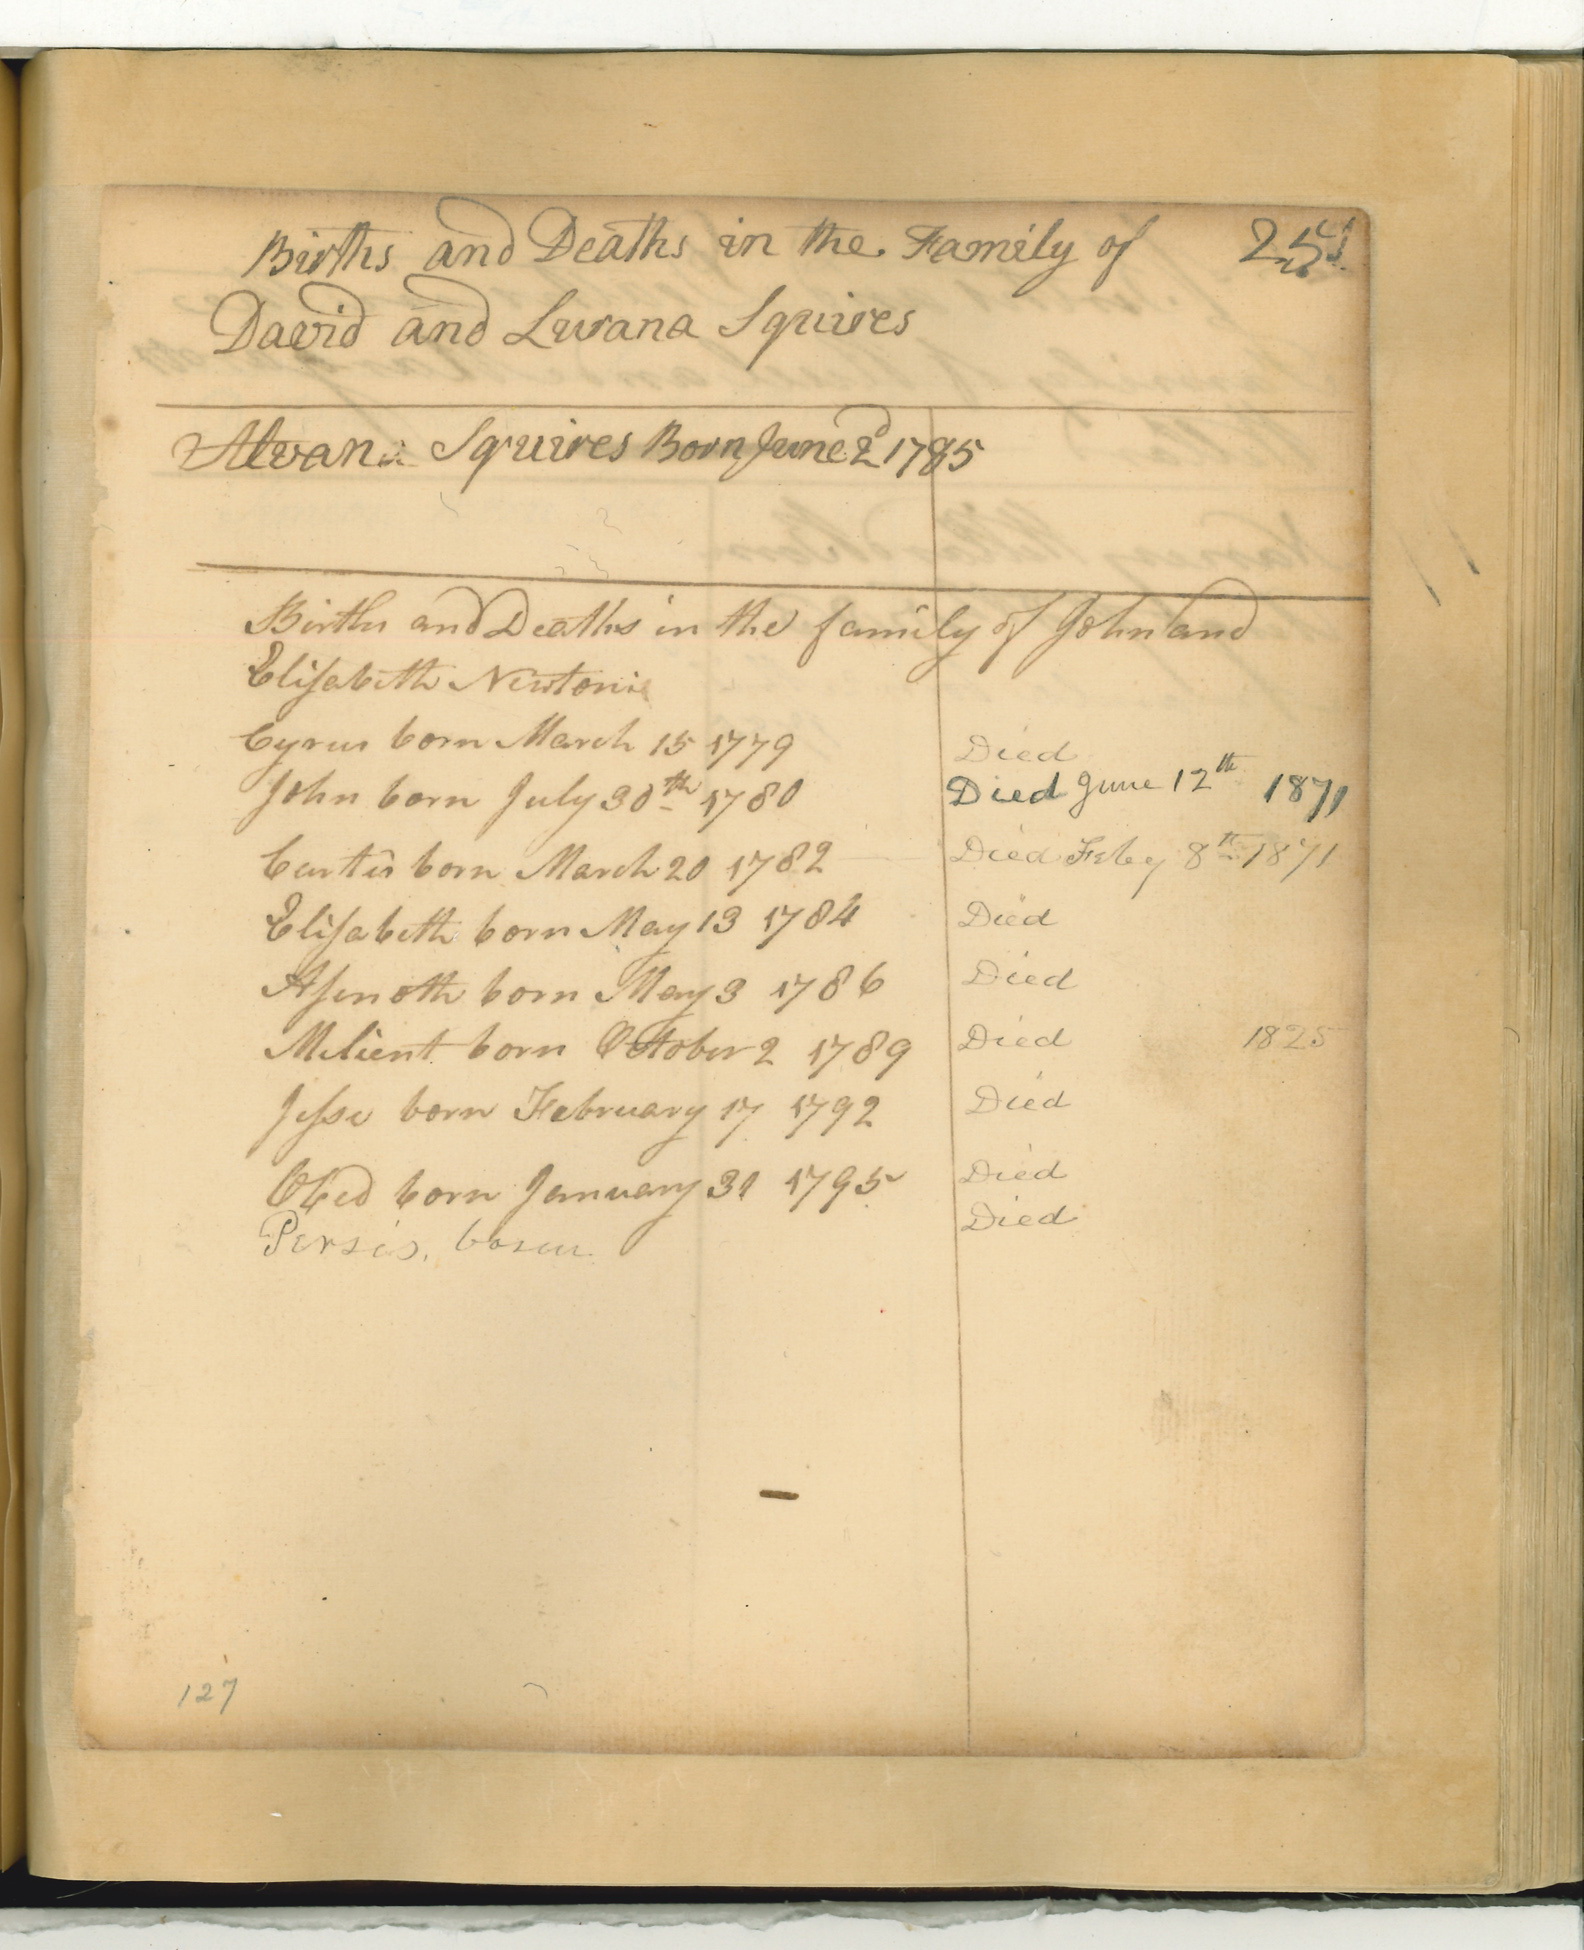 Births and Deaths in the Family of
David and Lurana Squires
Alvan Squires Born June 2d 1785
Births and Deaths in the family of John and
Elisabeth Newton
Cyrus born March 15 1779 Died
John born July 30th 1780 Died June 12th 1871
Curtis born March 20 1782 Died Feby 8th 1871
Elisabeth born May 13 1784 Died
Asenath born May 3 1786 Died
Milient born October 2 1789 Died 1825
Jesse born February 17 1792 Died
Obed born January 31 1795 Died
Persis. born Died
127